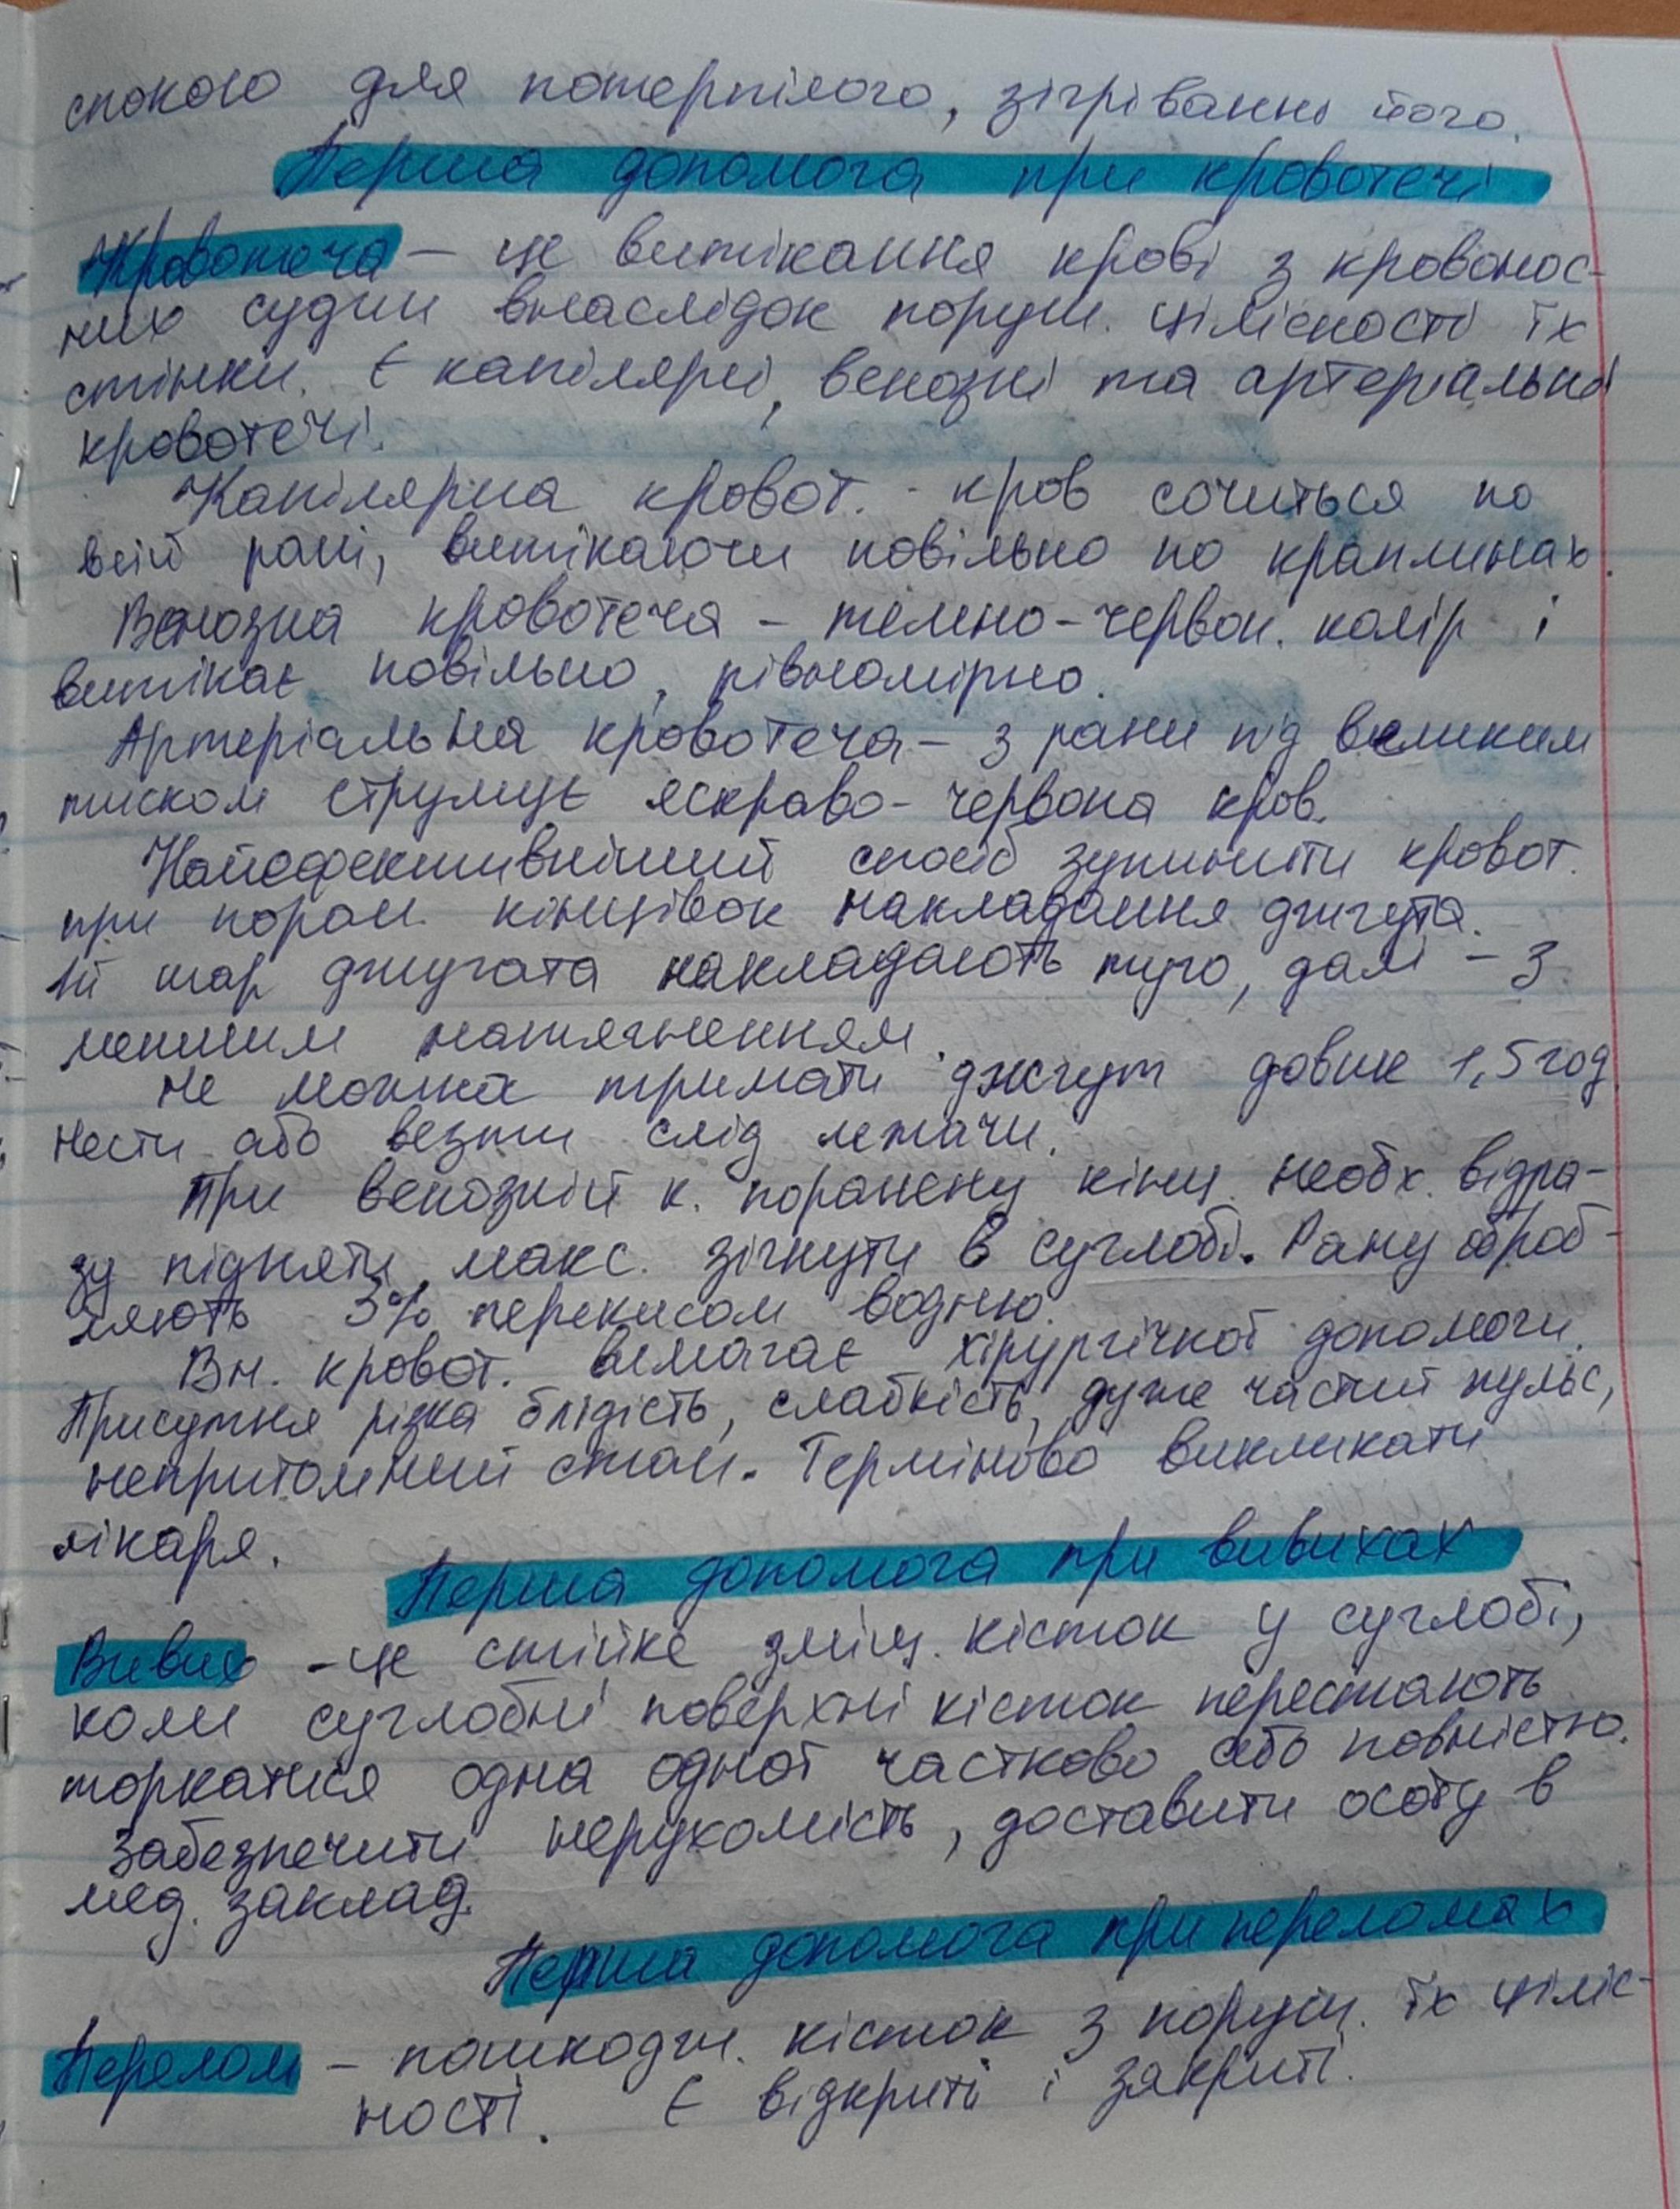 спокою для потерпілого, зігріванні його.
Перша допомога при кровотечі
Кровотеча – це витікання крові з кровонос-
них судин внаслідок поруш. цілісності їх
стінки. Є капілярні, венозні та артеріальні
кровотечі.
Капілярна кровот. - кров сочиться по
всій рані, витікаючи повільно по краплинах.
Венозна кровотеча – темно-червон. колір і
витікає повільно, рівномірно.
Артеріальна кровотеча – з рани під великим
тиском струмує яскраво-червона кров.
Найефективніший спосіб зупинити кровот.
при поран. кінцівок накладання джгута.
1й шар джугата накладають туго, далі – з
меншим натягненням.
Не можна тримати джгут довше 1,5 год.
Нести або везти слід лежачи.
При венозній к. поранену кінц. необх. відра-
зу підняти, макс. зігнути в суглобі. Рану оброб-
ляють 3% перекисом водню.
Вн. кровот. вимагає хірургічної допомоги.
Присутня різка блідість, слабкість, дуже частий пульс,
непритомний стан. Терміново викликати
лікаря.
Перша допомога при вивихах
Вивих - це стійке зміщ. кісток у суглобі,
коли суглобні поверхні кісток перестають
торкатися одна одної частково або повністю.
Забезпечити нерухомість, доставити особу в
мед. заклад.
Перша допомога при переломах
Перелом – пошкодж. кісток з поруш. їх ціліс-
ності. Є відкриті і закриті.